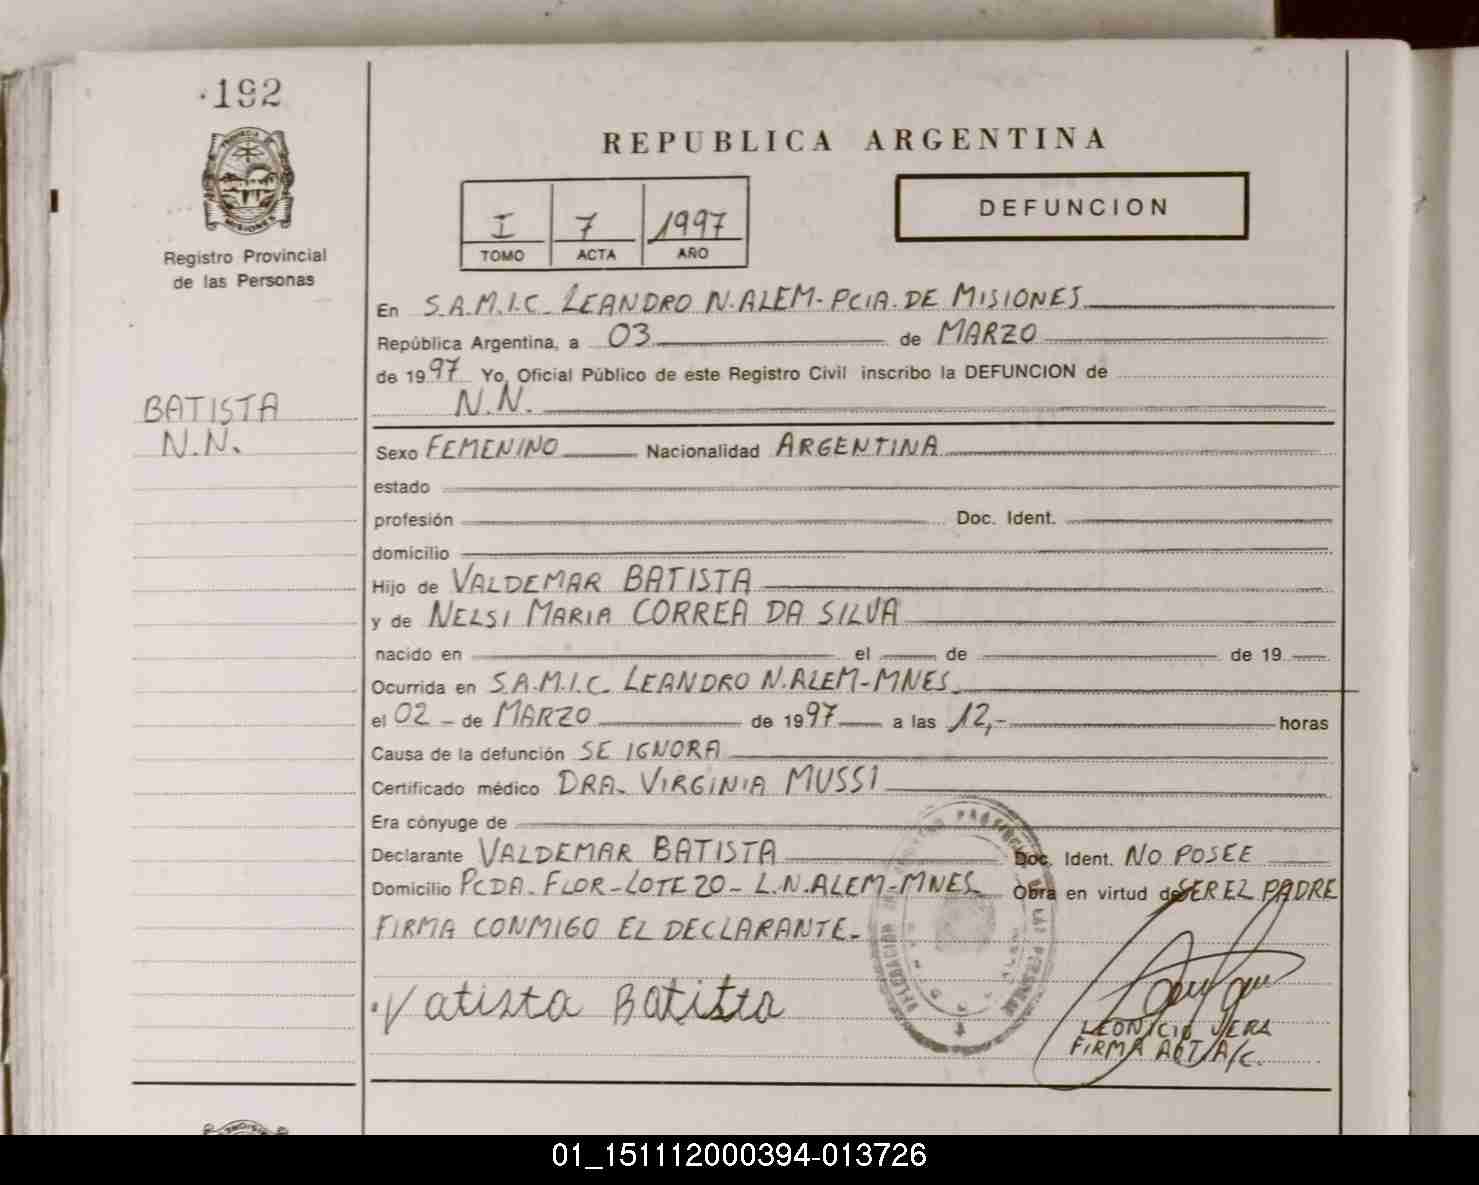 ·192
PROVINCIA DE
MISIONES
Registro Provincial
de las Personas
BATISTA
N.N.
REPUBLICA ARGENTINA
I 7 1997
TOMO ACTA AÑO
DEFUNCION
En S.A.M.I.C. LEANDRO N. ALEM - PCIA. DE MISIONES
República Argentina, a 03 de MARZO
de 1997 Yo, Oficial Público de este Registro Civil inscribo la DEFUNCION de
N.N.
Sexo FEMENINO Nacionalidad ARGENTINA
estado
profesión Doc. Ident.
domicilio
Hijo de VALDEMAR BATISTA
y de NELSI MARIA CORREA DA SILVA
nacido en el de de 19
Ocurrida en S.A.M.I.C. LEANDRO N. ALEM-MNES.
el 02 - de MARZO de 1997 a las 12,- horas
Causa de la defunción SE IGNORA
Certificado médico DRA. VIRGINIA MUSSI
Era cónyuge de
Declarante VALDEMAR BATISTA Doc. Ident. NO POSEE
Domicilio PCDA. FLOR - LOTE 20 - L.N. ALEM-MNES. Obra en virtud de SER EL PADRE
FIRMA CONMIGO EL DECLARANTE.-
Vatista Batista
LEONICIO VERA
FIRMA AUT. A/C.
01_151112000394-013726